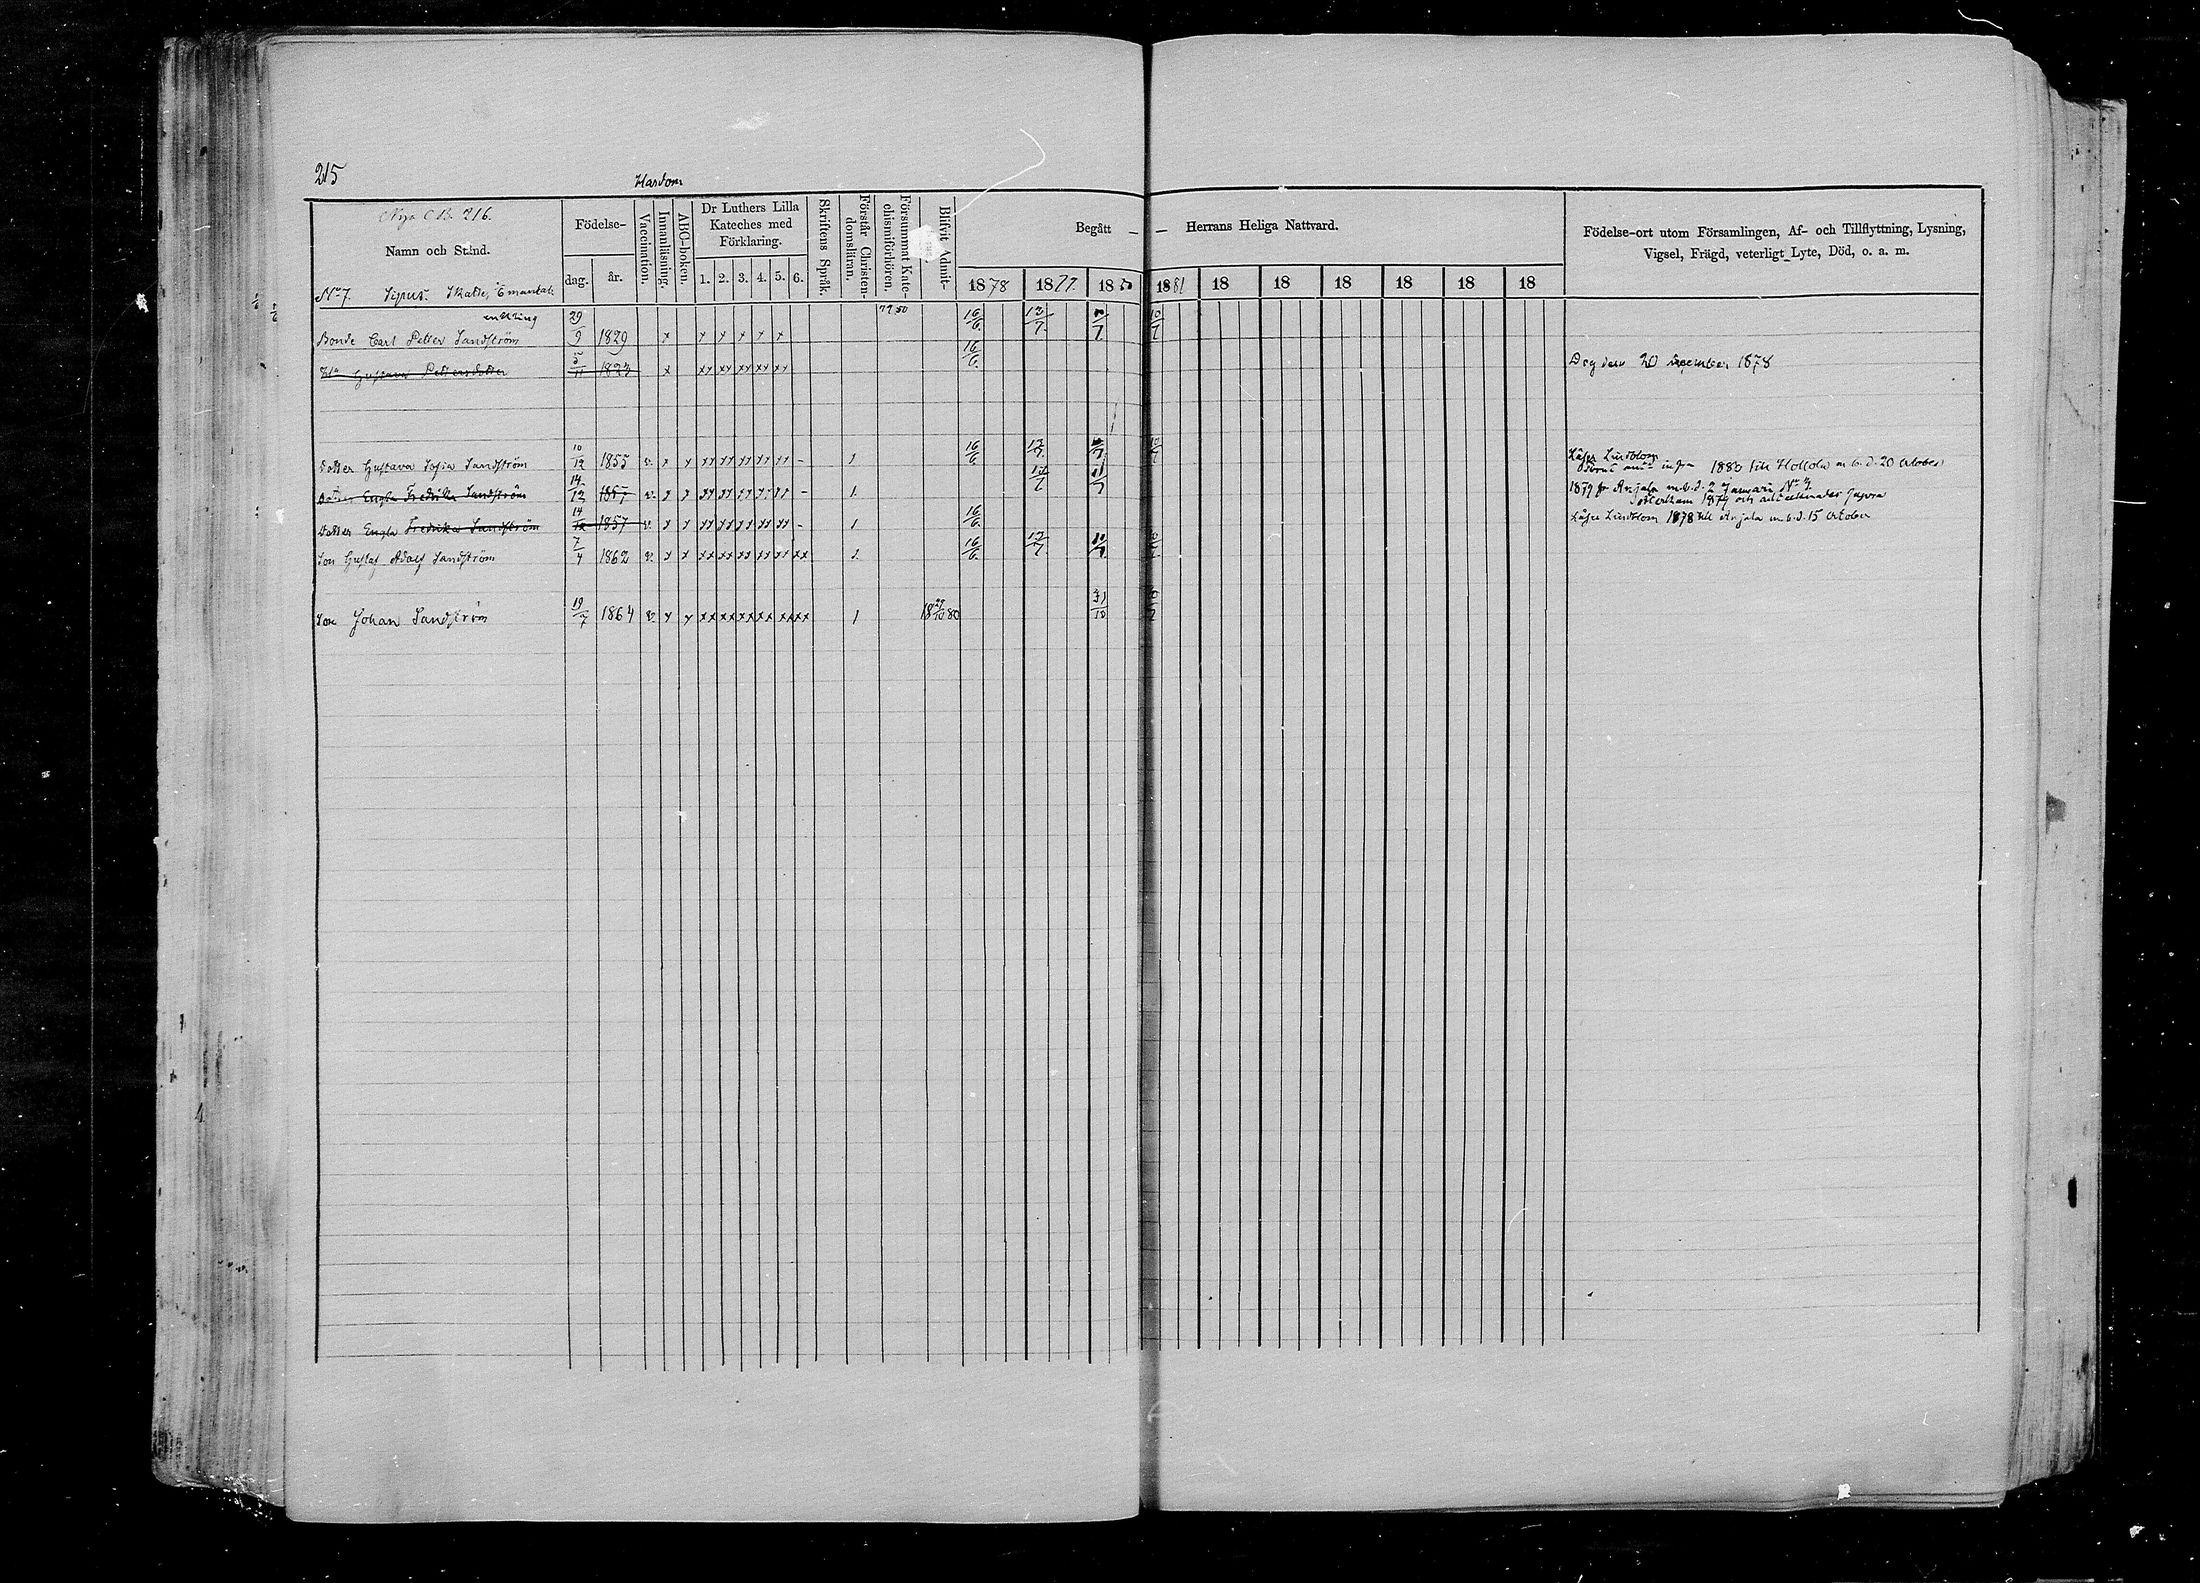 215
Hardom
Nya C.B. 216.
Namn och Stånd.
Födelse-
dag. år.
Vaccination.
Innanläsning.
ABC-boken.
Dr Luthers Lilla Kateches med Förklaring.
1. 2. 3. 4. 5. 6.
Skriftens Språk.
Förstår Christendomsläran.
Försummat Katechismiförhören.
Blifvit Admit-
Begått — — Herrans Heliga Nattvard.
1878 1879 1880 1881 18 18 18 18 18 18
Födelse-ort utom Församlingen, Af- och Tillflyttning, Lysning,
Vigsel, Frägd, veterligt Lyte, Död, o. a. m.
No 7. Sipus. Skatte,
enkling
Bonde Carl Petter Sandström 29/9 1829 x x x x x x 16/6 12/7 10/7
Hu Gustava Pettersdotter 5/11 1823 x xx xx xx xx xx 16/6 Dog den 20 december 1878
Dotter Gustava Sofia Sandström 10/12 1855 v. x x xx xx xx xx xx - 1 16/6 12/7 10/7 1880 till Hollola m.b.d. 20 October
Dotter Engla Fredrika Sandström 14/12 1857 v. x x xx xx xx xx xx - 1. 12/7 1879 fr Anjala m.b.d. 2 Januari No 9
Dotter Engla Fredrika Sandström 14/12 1857 v. x x xx xx xx xx xx - 1 16/6 Lindblom 1878 till Anjala m.b.d. 15 October
Son Gustaf Adolf Sandström 7/4 1862 v. x x xx xx xx xx xx xx 1. 16/6 12/7
Son Johan Sandström 19/7 1864 v. x x xx xx xx xx xx xx 1 18 29/10 80 31/10